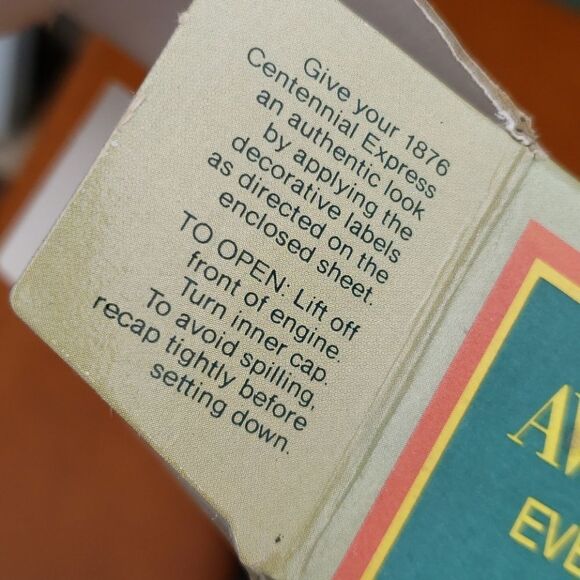 Give your 1876
Centennial Express
an authentic look
by applying the
decorative labels
as directed on the
enclosed sheet.
TO OPEN: Lift off
front of engine.
Turn inner cap.
To avoid spilling,
recap tightly before
setting down.